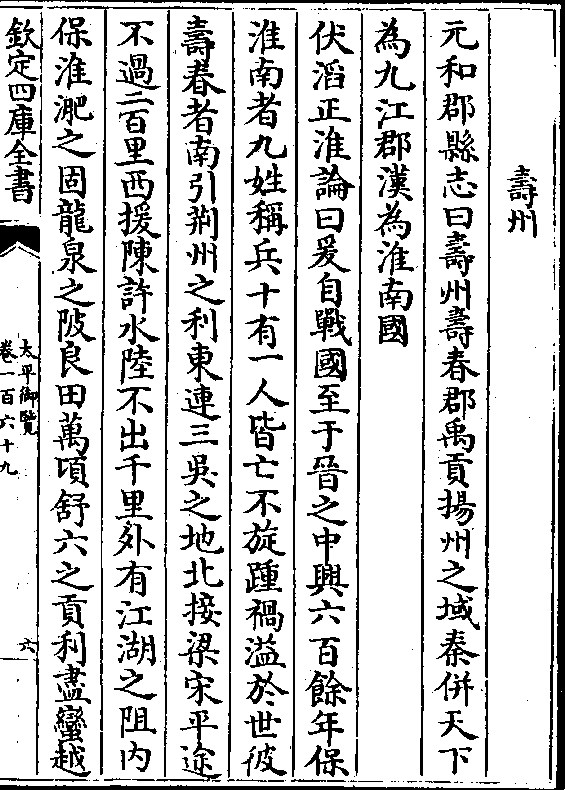 壽州
元和郡縣志曰壽州壽春郡禹貢揚州之域秦併天下
為九江郡漢為淮南國
伏滔正淮論曰爰自戰國至于晉之中興六百餘年保
淮南者九姓稱兵十有一人皆亡不旋踵禍溢於世彼
壽春者南引荆州之利東連三吳之地北接梁宋平途
不過二百里西援陳許水陸不出千里外有江湖之阻内
保淮淝之固龍泉之陂良田萬頃舒六之貢利盡蠻越
欽定四庫全書
太平御覽
卷一百六十九
六